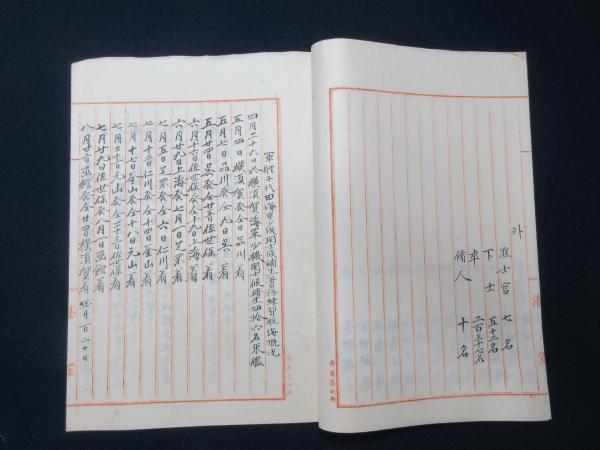 外
准士官 七名
下士 五十二名
卒 二百三十七名
傭人 十名
軍艦千代田海軍少機関士候補生
四月二十六日於横須賀海軍少機関士候補生四拾六名乗艦
五月四日横須賀発仝日品川着
五月七日品川発仝九日呉着
五月廿四日呉発仝廿五日佐世保着
六月十六日佐世保発仝十九日上海着
六月廿九日上海発七月一日芝罘着
七月五日芝罘発仝六日仁川着
七月十二日仁川発仝十四日釜山着
七月十七日釜山発仝十八日元山着
七月二十日元山発仝二十三日佐世保着
七月廿九日佐世保発八月一日函館着
八月廿日函館発仝廿四日横須賀着 総日数百二十日